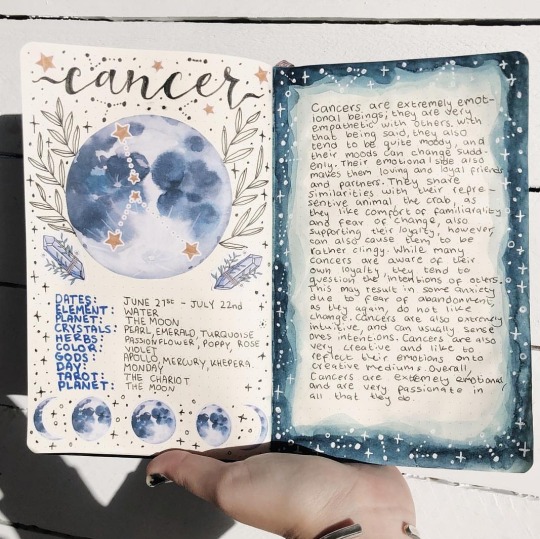 cancer
DATES: JUNE 21st - JULY 22nd
ELEMENT: WATER
PLANET: THE MOON
CRYSTALS: PEARL, EMERALD, TURQUOISE
HERBS: PASSIONFLOWER, POPPY, ROSE
COLOR: VIOLET
GODS: APOLLO, MERCURY, KHEPERA
DAY: MONDAY
TAROT: THE CHARIOT
PLANET: THE MOON
Cancers are extremely emot-
ional beings; they are very
empathetic with others. With
that being said, they also
tend to be quite moody, and
their moods can change sudd-
enly. Their emotional side also
makes them loving and loyal friends
and partners. They share
similarities with their repre-
sentive animal, the crab, as
they like comfort of familiarality
and fear of change, also
supporting their loyalty, however,
can also cause them to be
rather clingy. While many
cancers are aware of their
own loyalty, they tend to
question the intentions of others.
This may result in some anxiety
due to fear of abandonment,
as they again, do not like
change. Cancers are also extremely
intuitive, and can usually sense
ones intentions. Cancers are also
very creative and like to
reflect their emotions onto
creative mediums. Overall,
Cancers are extremely emotional
and are very passionate in
all that they do.